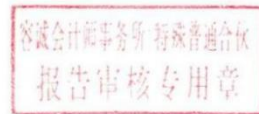 容诚会计师事务所(特殊普通合伙)
报告审核专用章